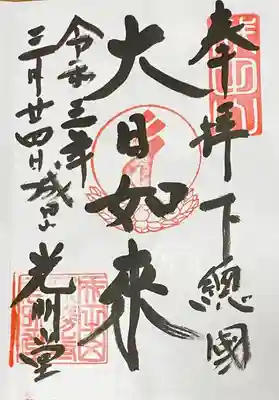 奉拜下總國
大日如来
令和三年
三月廿四日成田山光明堂